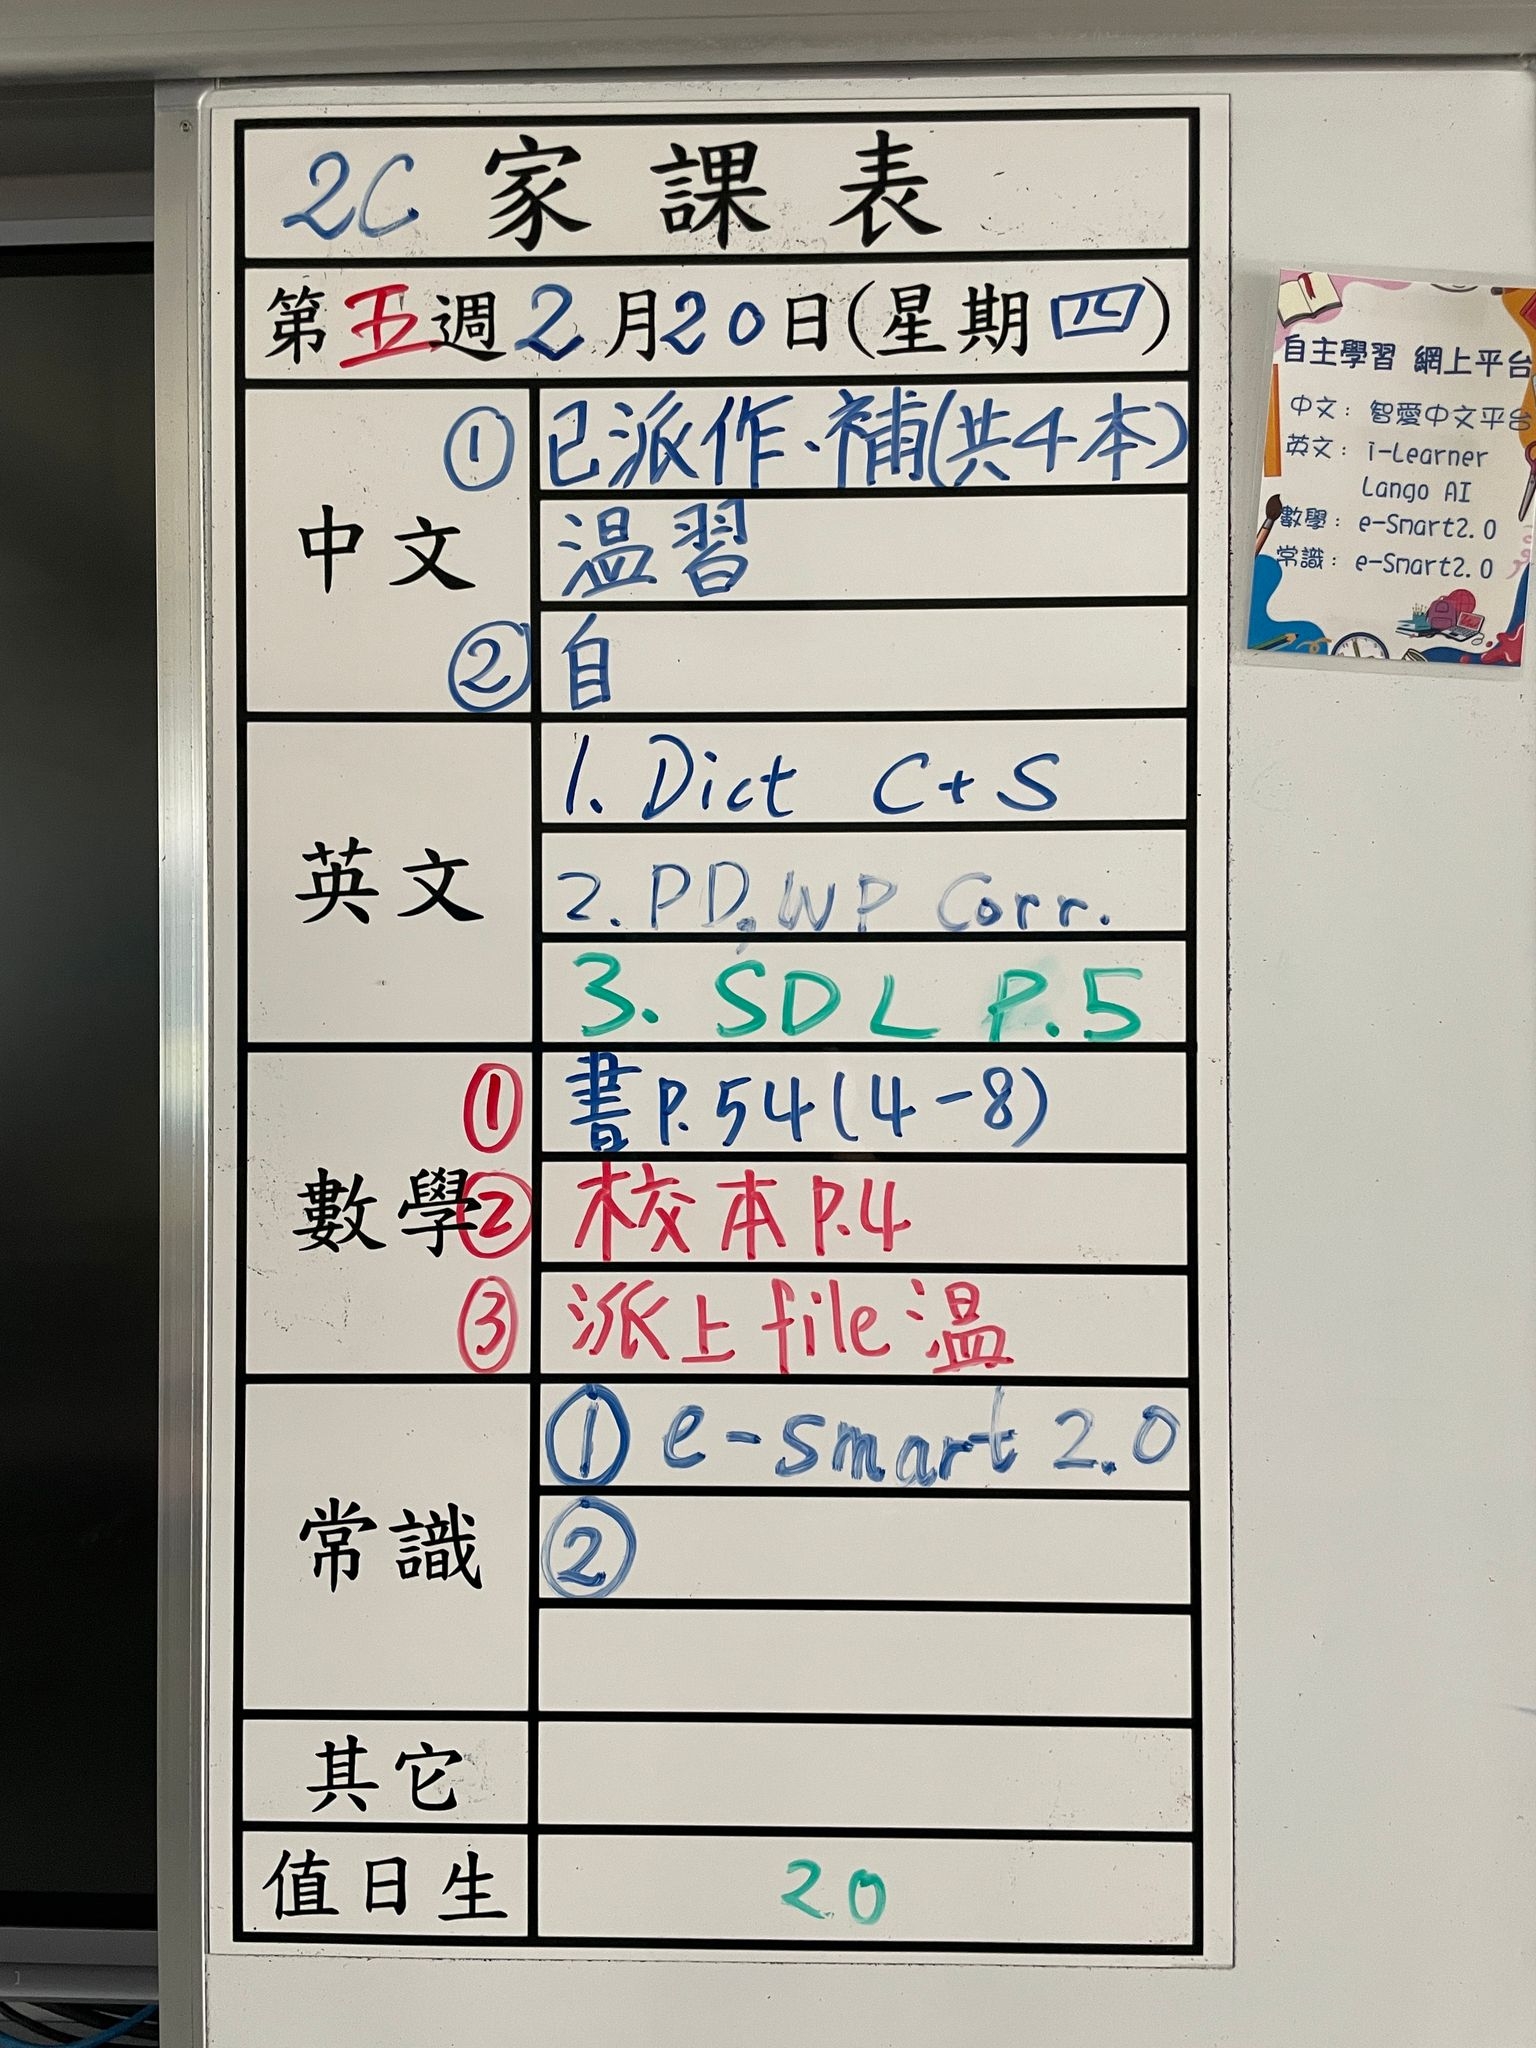 2C 家課表
第五週2月20日(星期四)
中文
① 已派作、補(共4本)
温習
② 自
英文
1. Dict C+S
2. PD, WP Corr.
3. SDL P.5
數學
① 書P.54(4-8)
② 校本P.4
③ 派上file温
常識
① e-smart 2.0
②
其它
值日生
20
自主學習 網上平台
中文：智愛中文平台
英文：i-Learner
Lango AI
數學：e-Smart2.0
常識：e-Smart2.0